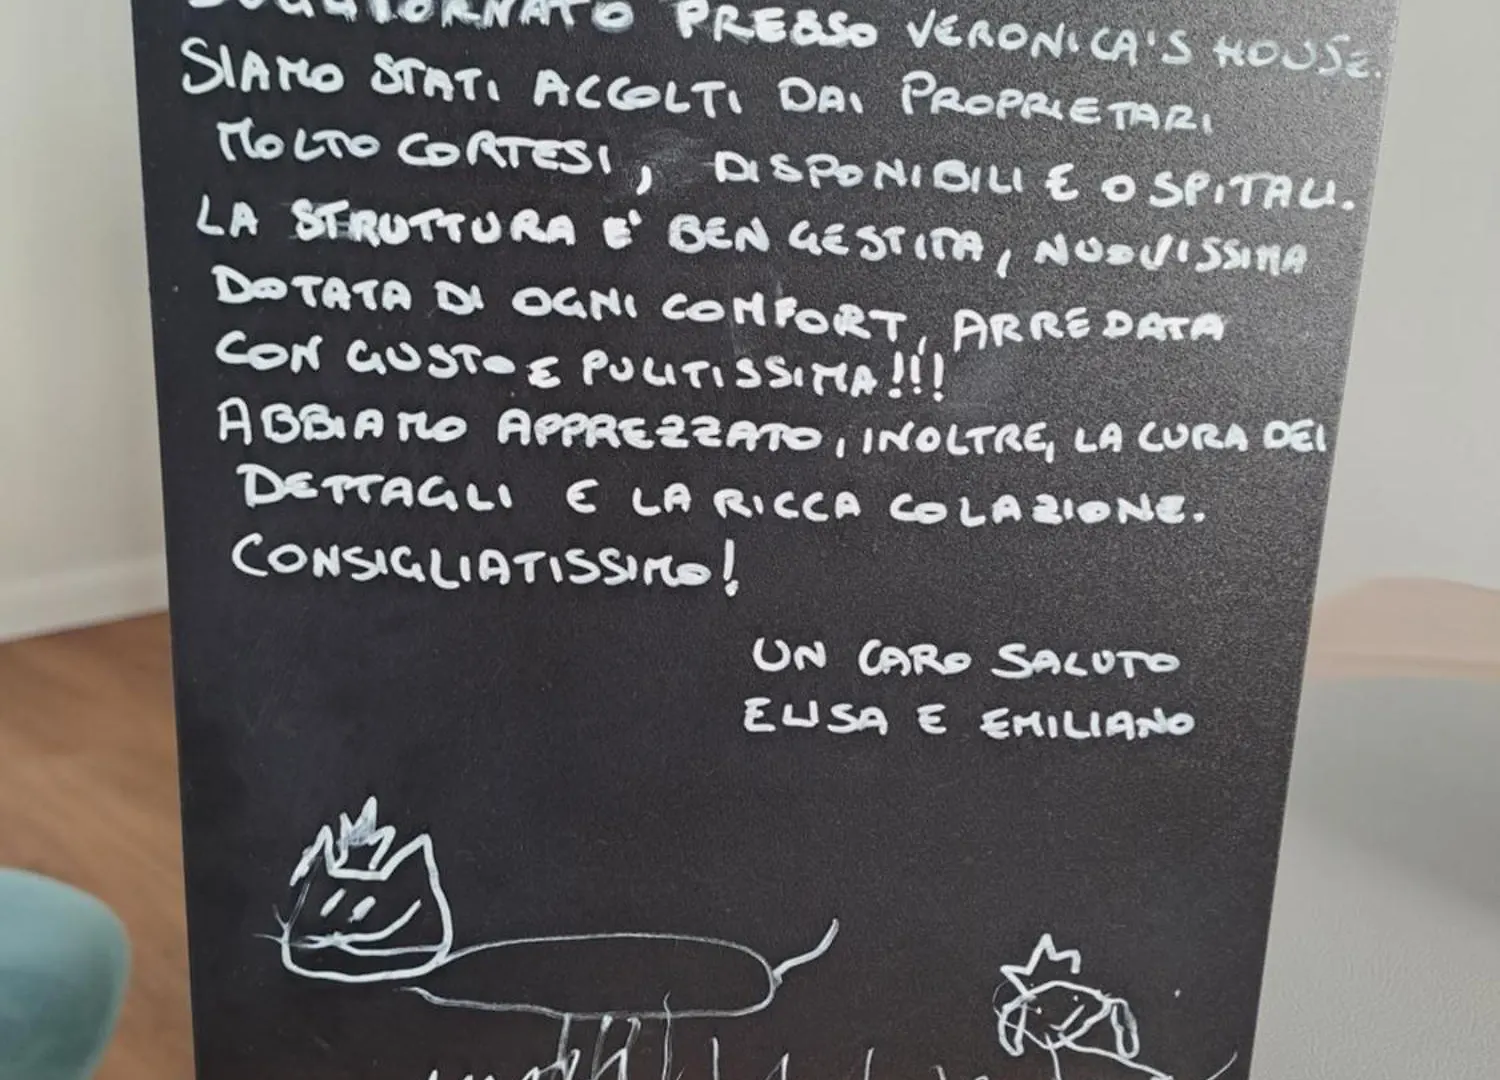 SOGGIORNATO PRESSO VERONICA'S HOUSE.
SIAMO STATI ACCOLTI DAI PROPRIETARI
MOLTO CORTESI, DISPONIBILI E OSPITALI.
LA STRUTTURA E' BEN GESTITA, NUOVISSIMA
DOTATA DI OGNI COMFORT, ARREDATA
CON GUSTO E PULITISSIMA!!!
ABBIAMO APPREZZATO, INOLTRE, LA CURA DEI
DETTAGLI E LA RICCA COLAZIONE.
CONSIGLIATISSIMO!
UN CARO SALUTO
ELISA E EMILIANO